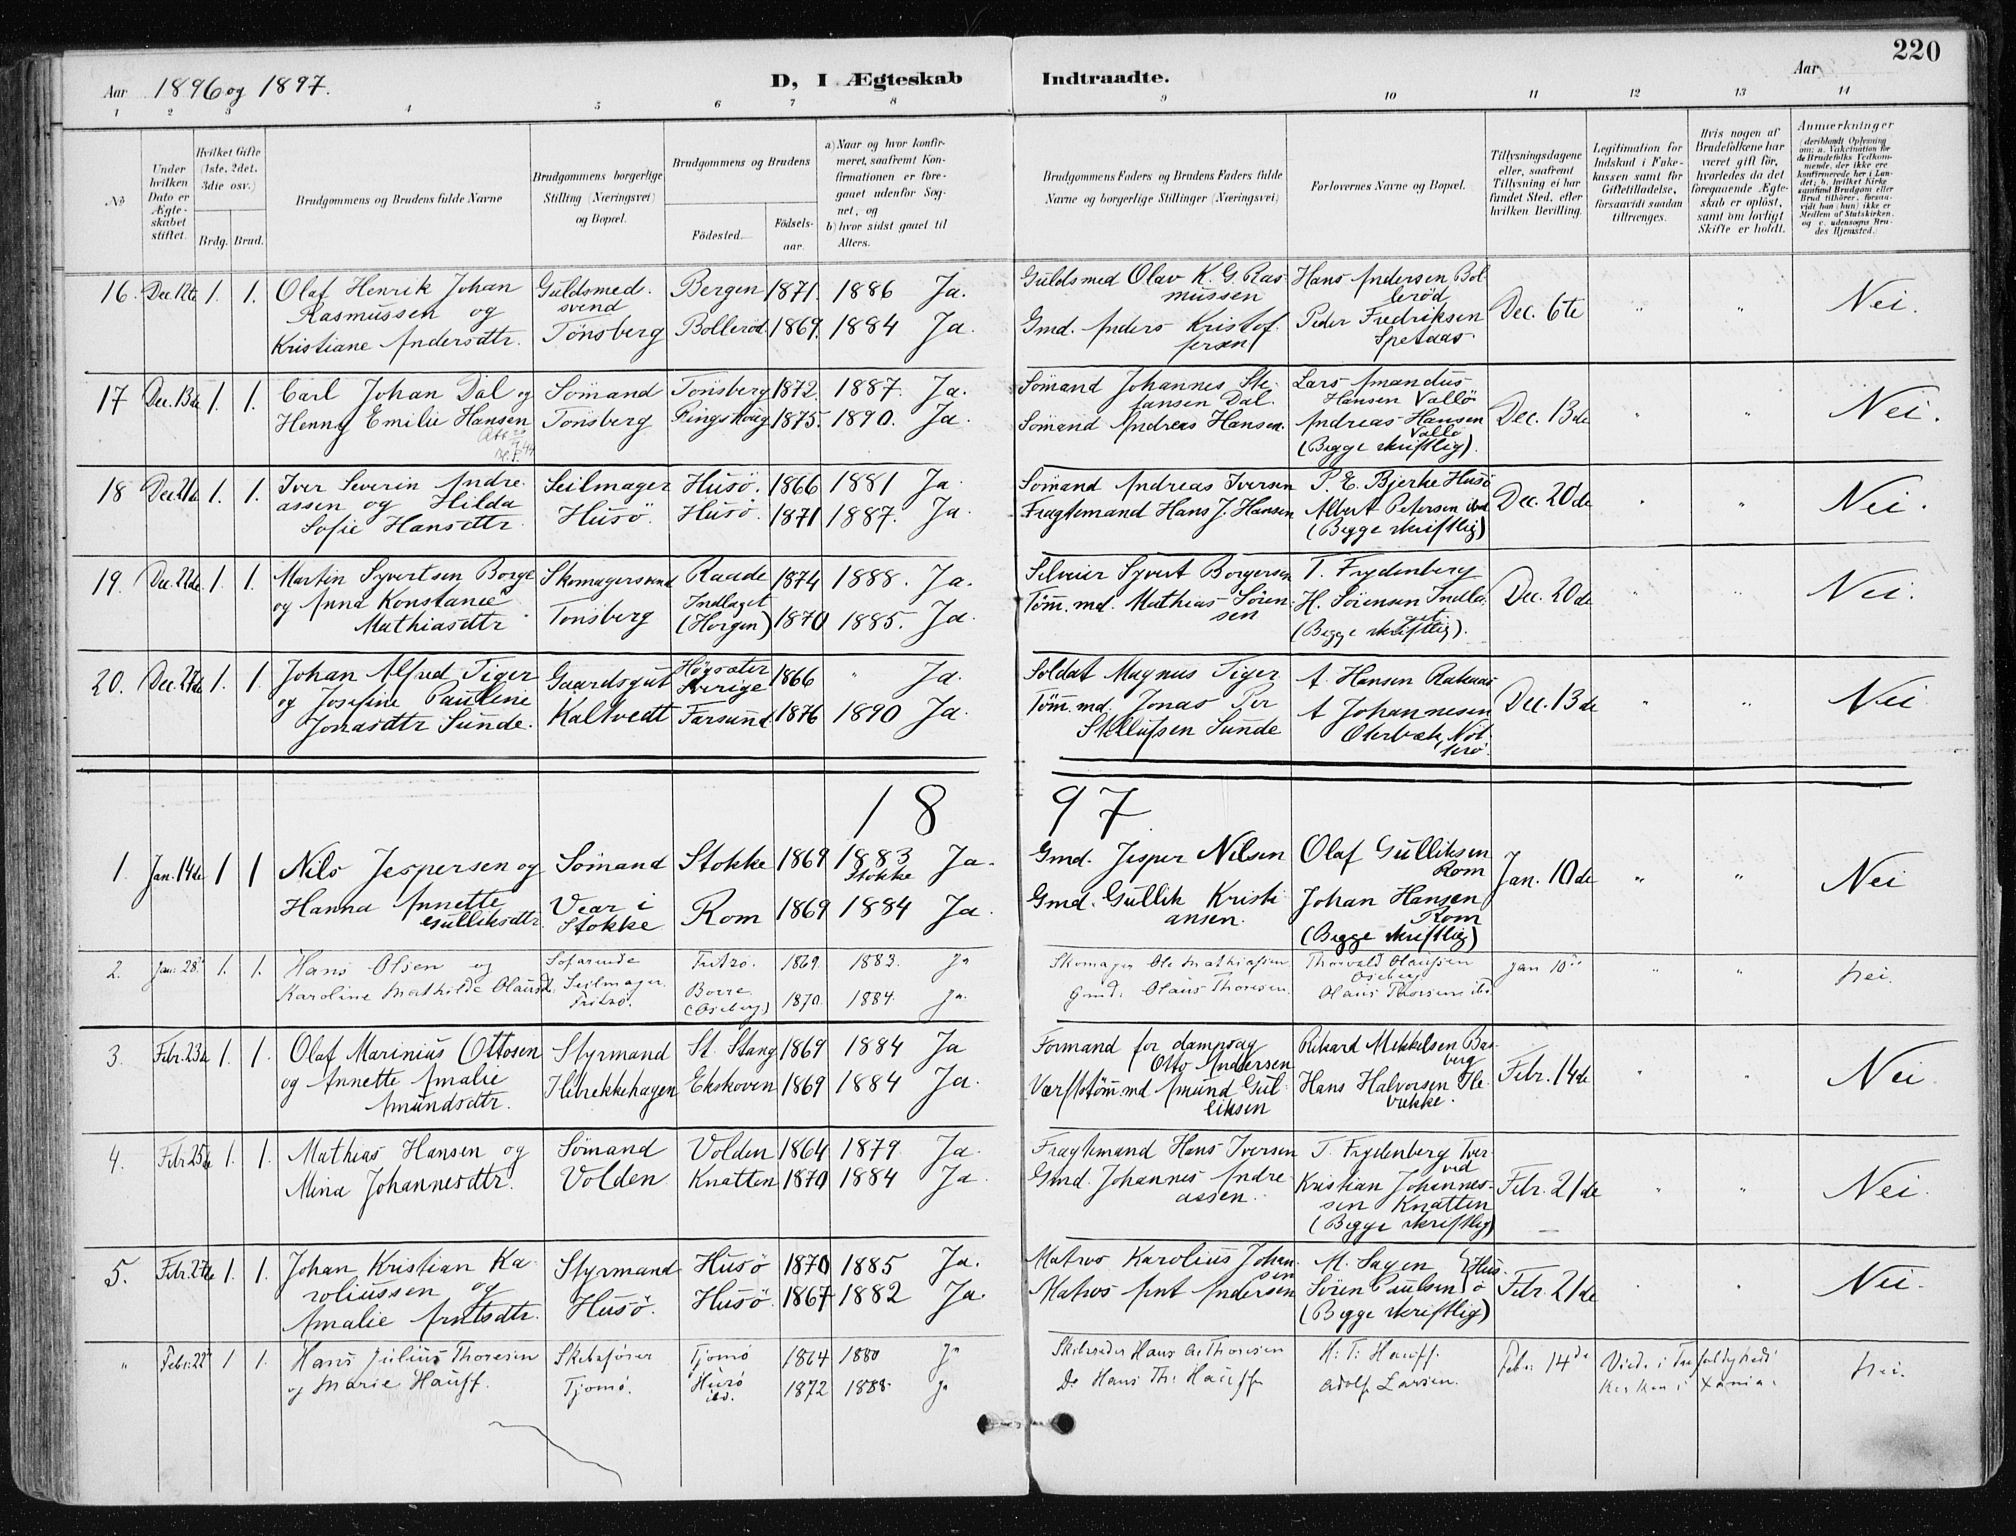 220
Aar 1896 og 1897.
D, I Ægteskab Indtraadte.
Aar
1 2 3 4 5 6 7 8 9 10 11 12 13 14
No
Under hvilken Dato er Ægteskabet stiftet.
Hvilket Gifte (1ste, 2det, 3die osv.)
Brdg. Brud.
Brudgommens og Brudens fulde Navne
Brudgommens borgerlige Stilling (Næringsvei) og Bopæl.
Brudgommens og Brudens
Fødested. Fødselsaar.
a) Naar og hvor konfirmeret, saafremt Konfirmationen er foregaaet udenfor Sognet, og
b) hvor sidst gaaet til Alters.
Brudgommens Faders og Brudens Faders fulde Navne og borgerlige Stillinger (Næringsvei)
Forlovernes Navne og Bopæl.
Tillysningsdagene eller, saafremt Tillysning ei har fundet Sted, efter hvilken Bevilling.
Legitimation for Indskud i Enkekassen samt for Giftetilladelse, forsaavidt saadan tiltrænges.
Hvis nogen af Brudefolkene har været gift før, hvorledes da det foregaaende Ægteskab er opløst, samt om lovligt Skifte er holdt.
Anmærkninger (deriblandt Oplysning om: a. Vakcination for de Brudefolks Vedkommende, der ikke ere konfirmerede her i Landet; b. hvilket Kirkesamfund Brudgom eller Brud tilhører, forsaavidt han (hun) ikke er Medlem af Statskirken, og c. udensogns Brudes Hjemsted.)
16. Dec. 12te 1. 1. Olaf Henrik Johan Guldsmed. Bergen 1871. 1886 Ja. Guldsmed Olav K. G. Ras Hans Andersen Bol Dec. 6te " " Nei.
Rasmussen og svend mussen lerød
Kristiane Andersdtr. Tönsberg Bollerød 1869. 1884 Ja. Gmd. Anders Kristof Peder Fredriksen
fersen Spetaas
17 Dec. 13de 1. 1. Carl Johan Dal og Sömand Tönsberg 1872. 1887. Ja. Sömand Johannes Ste Lars Amandus Dec. 13de " " Nei.
fansen Dal. Hansen Vallö
Henny Emilie Hansen Tönsberg Ringshoug 1875. 1890. Ja. Sömand Andreas Hansen. Andreas Hansen
Vallö
(Begge skriftlig).
18 Dec. 21de 1. 1. Iver Severin Andre Seilmager Husö. 1866 1881 Ja. Sömand Andreas Iversen P. E. Bjerke Husö Dec. 20de " " Nei.
assen og Hilda Husö. Husö. 1871 1887. Ja. Fragtemand Hans J. Hansen Albert Petersen ibd
Sofie Hansdtr. (Begge skriftlig)
19. Dec. 22de 1. 1. Martin Syvertsen Borge Skomagersvend Raade 1874 1888. Ja. Selveier Syvert Borgersen T. Frydenberg Dec. 20de " " Nei.
og Anna Konstance Tönsberg Indlaget Töm. md. Mathias Sören H. Sörensen Indla
Mathiasdtr (Horgen) 1870 1885. Ja. sen get
(Begge skriftlig).
20. Dec. 27de 1. 1. Johan Alfred Tiger Gaardsgut Högsæter 1866 " Ja. Soldat Magnus Tiger A. Hansen Raknæs Dec. 13de " " Nei
og Josefine Pauline Kaltvedt Sverige
Jonasdtr Sunde. Farsund 1876 1890 Ja. Töm. md. Jonas Per A Johannesen
Stellufsen Sunde Oterbæk, Nöt
terö.
18 97
1. Jan. 14de 1 1 Nils Jespersen og Sömand Stokke 1869 1883 Ja. Gmd. Jesper Nilsen Olaf Gulliksen Jan. 10de " " Nei
Stokke Rom
Hanna Annette Vear i Rom 1869 1884 Ja. Gmd. Gullik Kristi Johan Hansen
Gulliksdtr. Stokke ansen. Rom
(Begge skriftlig)
2. Jan. 28. 1. 1. Hans Olsen og Söfarende Fritzö. 1869. 1883. Ja Skomager Ole Mathiassen Thorvald Olaussen Jan 10de " " Nei.
Karoline Mathilde Olausd. Seilmager. Borre Oseberg
Fritzö. (Oseberg) 1870. 1884. Ja. Gmd. Olaus Thoresen. Olaus Thoresen ibd
3. Febr. 23de 1. 1. Olaf Marinius Ottosen Styrmand St. Stang 1869 1884 Ja Formand for dampsag Rikard Mikkelsen Bre Febr. 14de " " Nei.
Otto Andersen berg
og Annette Amalie Ilebrekkehagen Ekskoven 1869 1884 Ja. Værftstöm. md Amund Gul Hans Halvorsen Ile
Amundsdtr. liksen brekke.
4. Febr. 25de 1. 1. Mathias Hansen og Sömand Volden 1864 1879. Ja. Fragtemand Hans Iversen T. Frydenberg Tver Febr. 21de " " Nei.
ved
Mina Johannesdtr. Volden Knatten 1870 1884 Ja. Gmd. Johannes Andre Kristian Johannes
assen. sen Knatten
(Begge skriftlig)
5. Febr. 27de 1. 1. Johan Kristian Ka Styrmand Husö 1870 1885 Ja. Matros Karolius Johan M. Sagen Hus Febr. 21de " " Nei.
roliussen og sen
Amalie Arntsdtr. Husö. Husö. 1867 1882 Ja. Matros Arnt Andersen Sören Paulsen ö
(Begge skriftlig)
" Febr. 22 1 1. Hans Julius Thoresen Skibsförer Tjömö 1864 1880 Ja Skibsreder Hans A. Thoresen H. T. Hauff. Febr. 14de Viede i Trefoldigheds Nei.
og Marie Hauff. Tjömö. Husö 1872 1888. Ja Do Hans Th. Hauff Adolf Larsen. Kirken i Xania.
ibd.